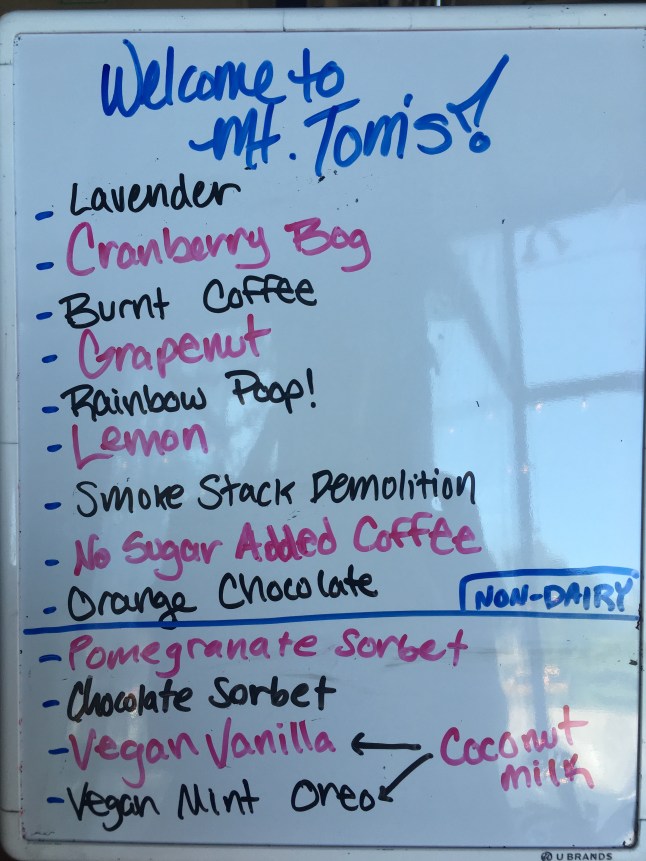 Welcome to
Mt. Tom's!
- Lavender
- Cranberry Bog
- Burnt Coffee
- Grapenut
- Rainbow Poop!
- Lemon
- Smoke Stack Demolition
- No Sugar Added Coffee
- Orange Chocolate
NON-DAIRY
- Pomegranate Sorbet
- Chocolate Sorbet
- Vegan Vanilla ← Coconut
milk
- Vegan Mint Oreo
U BRANDS